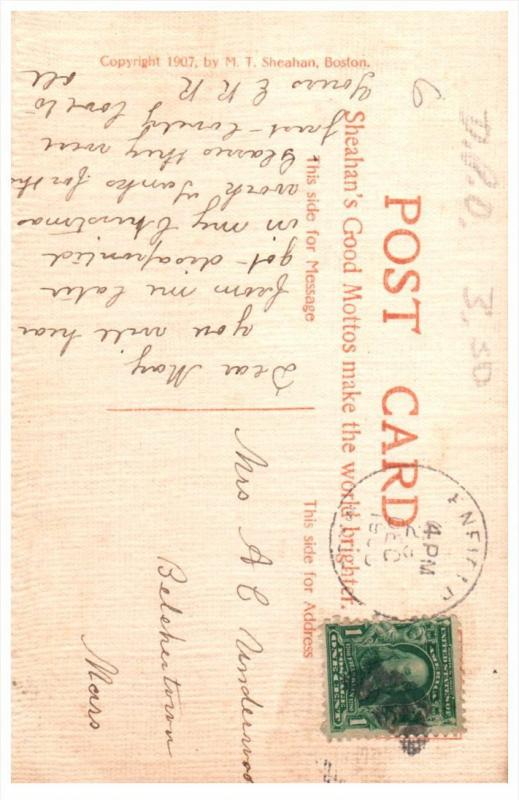 D.P.O. 3.50
POST CARD
Sheahan's Good Mottos make the world brighter.
ENFIELD
4 PM
DEC
UNITED STATES OF AMERICA
1 1
POSTAGE
ONE CENT
This side for Message
This side for Address
Dear May,
you will hear
from me later
got disapointed
in my Christmas
work Tanks for the
they were
just lovely love to
all
Yours E R R
6
Mrs A C Underwoo
Belchertown
Mass
Copyright 1907, by M. T. Sheahan, Boston.